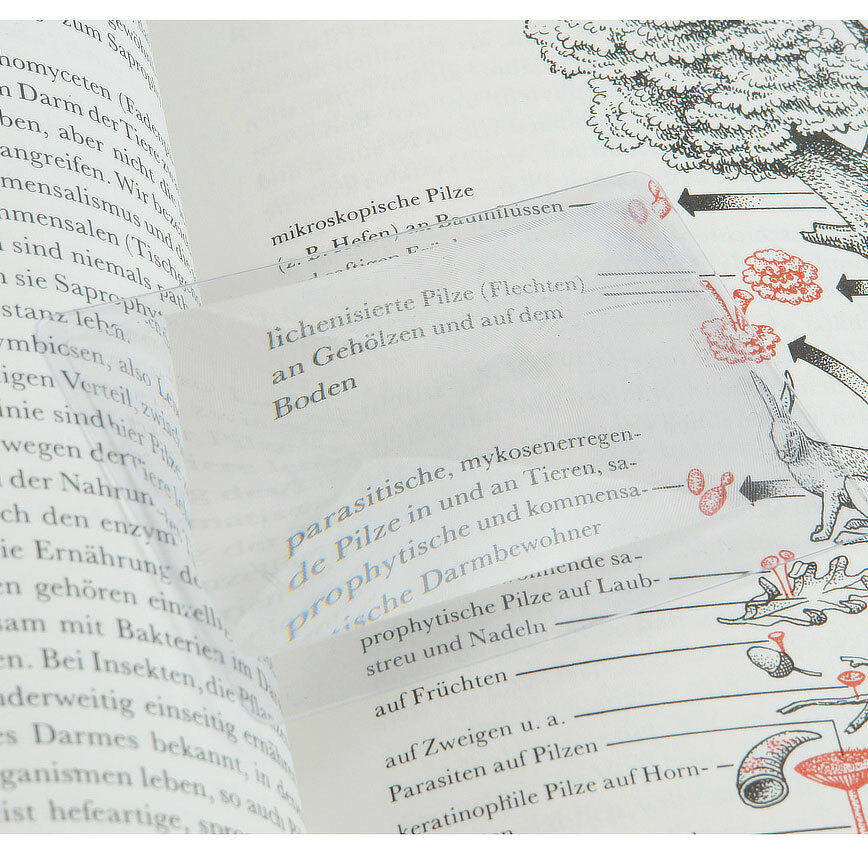 gewöhn
zum Saprop
nomyceten (Faden
Darm der Tiere
ben, aber nicht die
angreifen. Wir beze
mensalismus und d
mmensalen (Tisch
sind niemals
sie Saprophy
stanz leben.
ymbiosen, also
igen Vorteil, zwisc
inie sind hier Pilze
wegen der
der Nahrun
ch den enzym
ie Ernährung
en gehören einzell
sam mit Bakterien im Da
en. Bei Insekten, die Pflanz
nderweitig einseitig ernähr
es Darmes bekannt, in den
ganismen leben, so auch P
eist hefeartige, spro
mikroskopische Pilze
(z. B. Hefen) an Baumflüssen
lichenisierte Pilze (Flechten)
an Gehölzen und auf dem
Boden
parasitische, mykosenerregen-
de Pilze in und an Tieren, sa-
prophytische und kommensa-
ische Darmbewohner
nende sa-
prophytische Pilze auf Laub-
streu und Nadeln
auf Früchten
auf Zweigen u. a.
Parasiten auf Pilzen
keratinophile Pilze auf Horn-